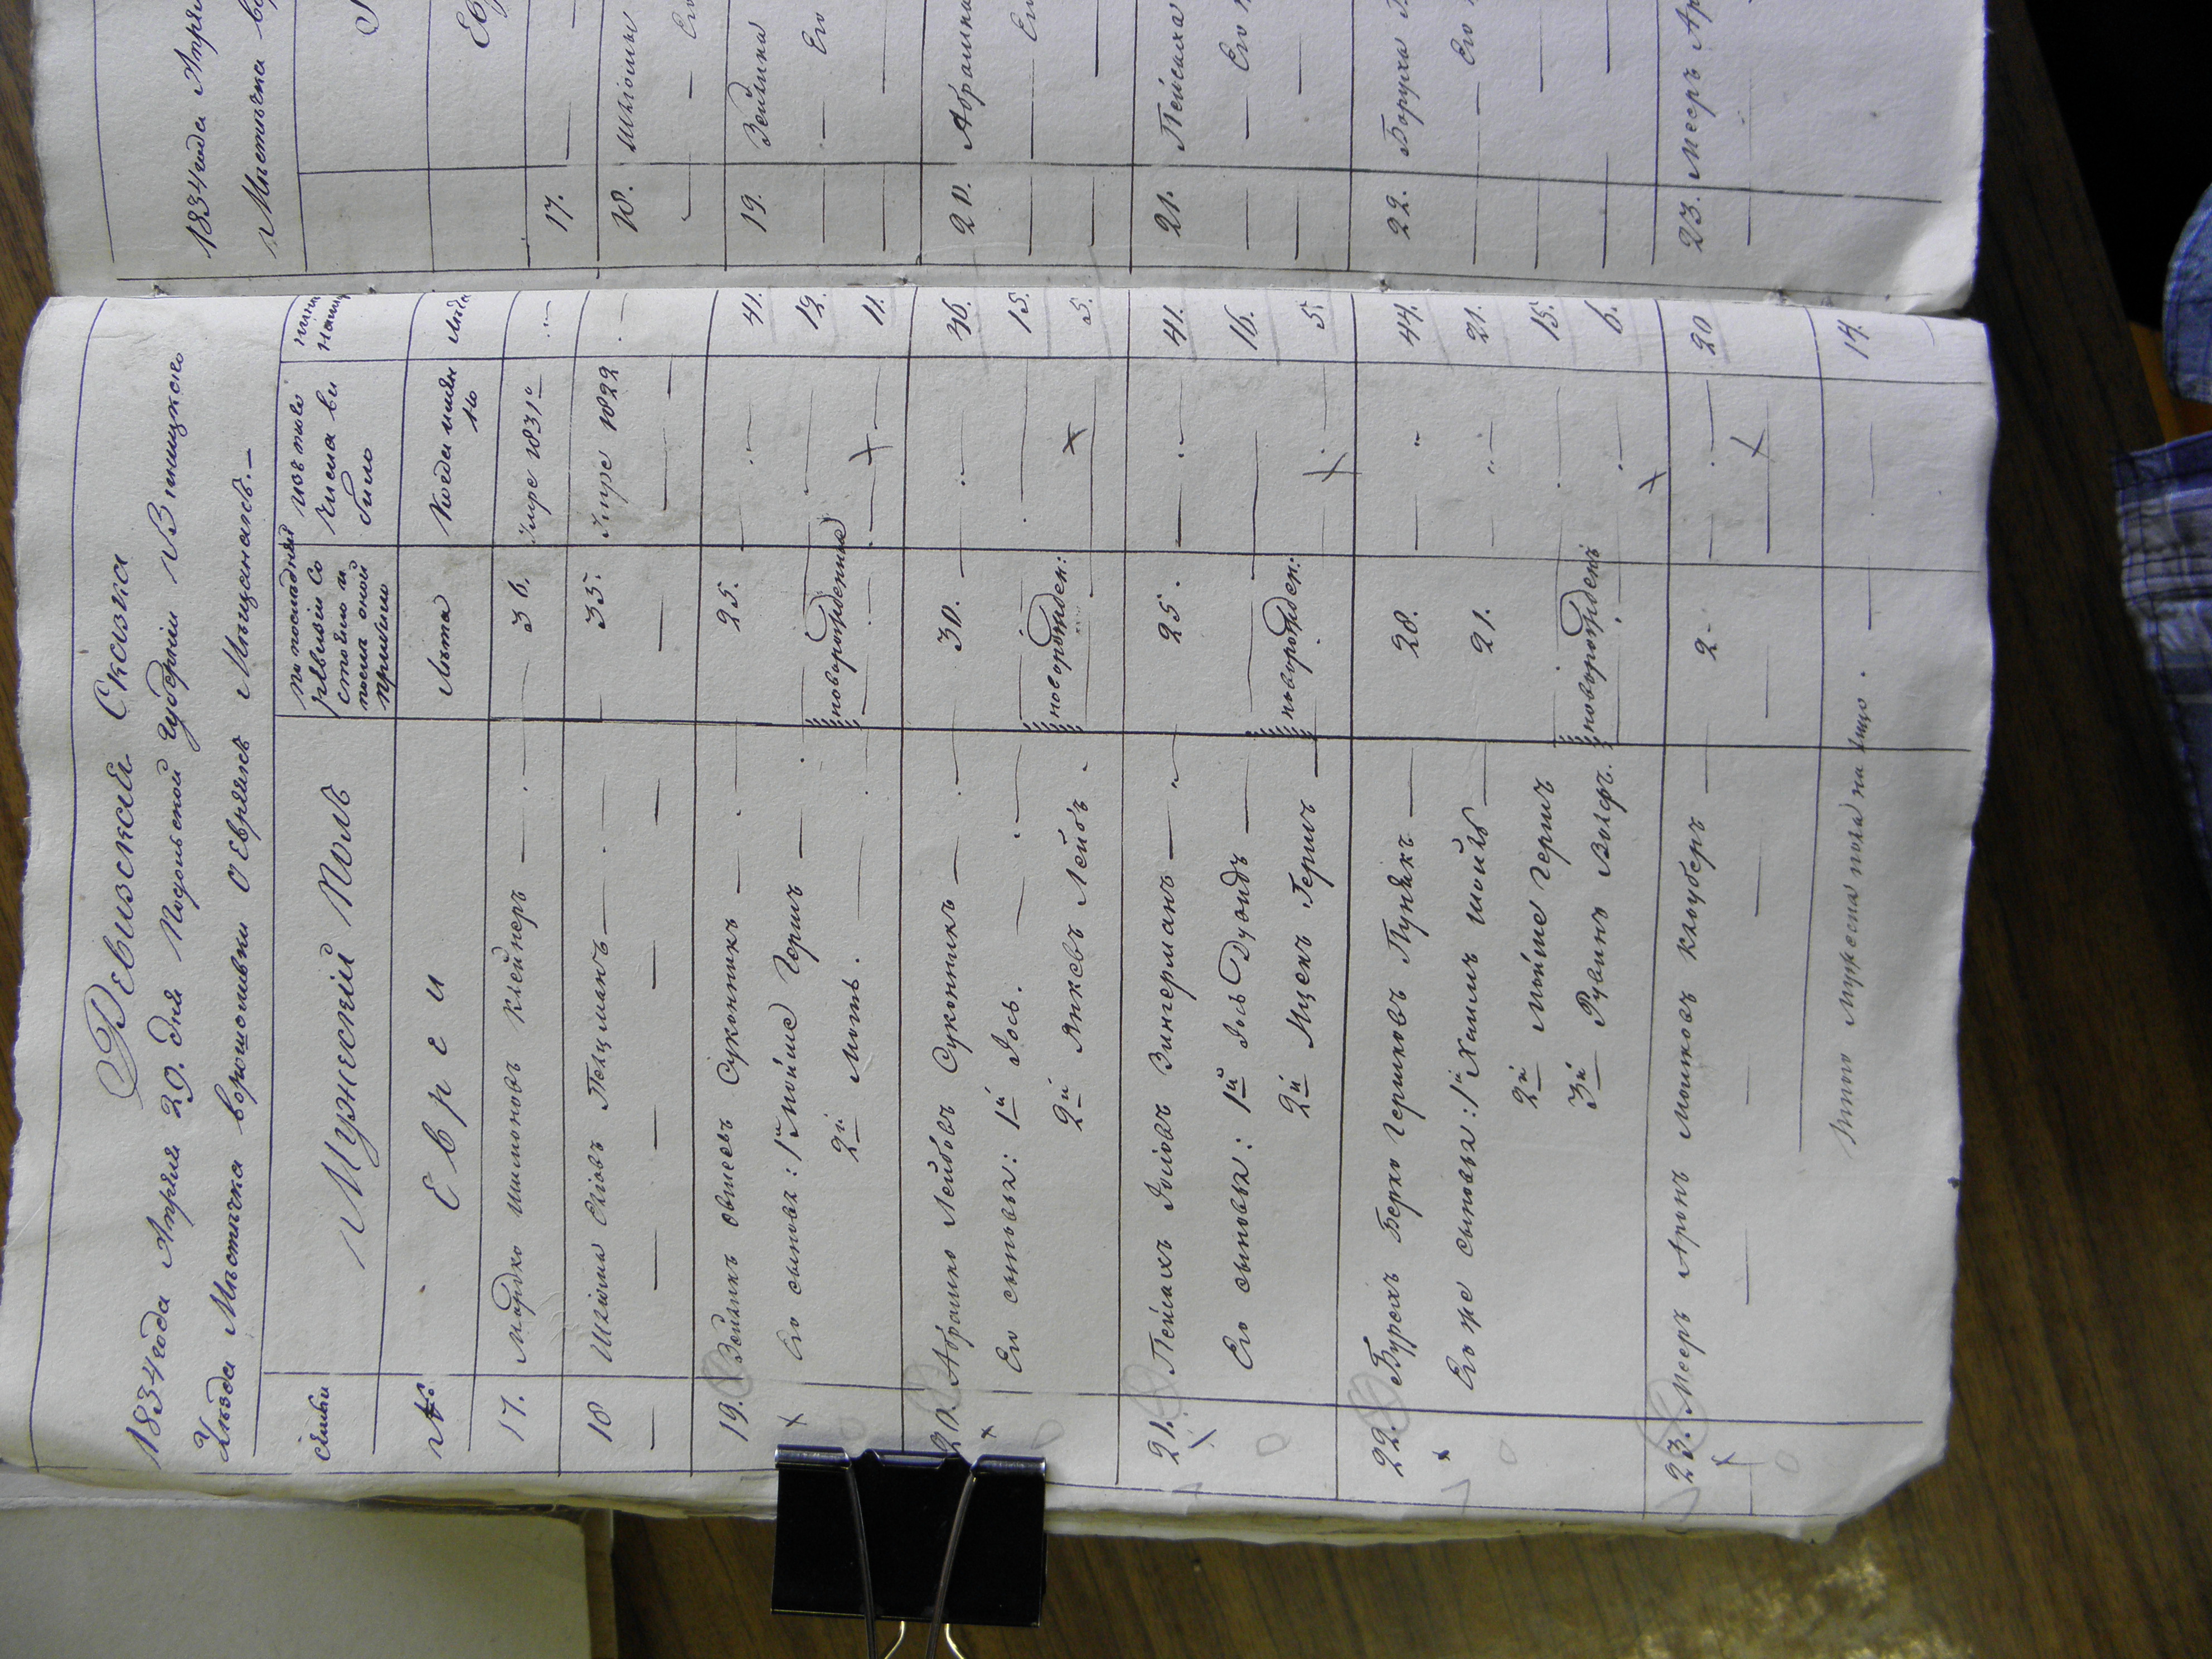 Ревизская Сказка
1834 года Апреля 29. дня Подольской губернии Винницкаго
Уезда Местечка Ворошиловки О Евреяхъ Мещанахъ.—
семьи
Мужескій Полъ
по последней ревизіи со стояло и после оной прибыло
изъ того числа вы было
ныне налиц
№
Евреи
Лета
Когда имян но
Лета
17. Мордко Шимоновъ Клейнеръ — 36. Умре 1831го
18 Шліома Сhіовъ Полцманъ — 35. Умре 1822
19. Зейликъ Овшеевъ Суконникъ — 25. — 41.
Его сыновья: 1й Мойше Гершъ — новорожденные 12.
2й Моть. — 11.
20. Абрамко Лейбовъ Суконникъ — 30. — 46.
Его сыновья: 1й Іось. — новорожден: 15.
2й Янкевъ Лейбъ 5.
21. Пейсахъ Іосіовъ Зингерманъ — 25. — 41.
Его сыновья: 1й Іось Дувидъ — новорожден: 16.
2й Ицекъ Гершъ — 5.
22. Бурехъ Берко Гершковъ Пунякъ — 28. — 44.
Его же сыновья: 1й Хаимъ Шойлъ — 21. 21.
2й Мойше Гершъ новорожденъ 15.
3й Рувинъ Волфъ. 6.
23. Мееръ Аронъ Мошковъ Клоуберъ — 2. — 20
Итого Мужеска пола на лицо. — 14.
1834 года Апре
Местечка во
17.
18. Шліомы
Его
19. Зейлика
Его
20. Абрамка
Его
21. Пейсаха
Его
22. Боруха
Его
23. Мееръ Ар